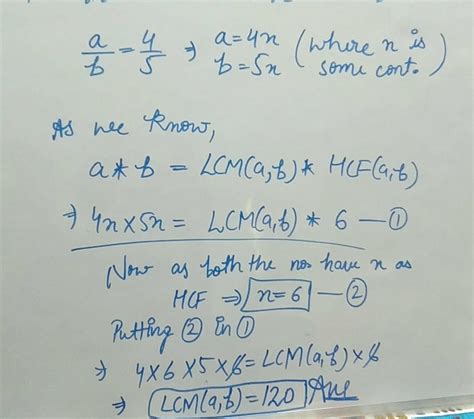 a/b = 4/5 ⇒ a = 4n (where n is
b = 5n some cont.)
As we know,
a * b = LCM(a,b) * HCF(a,b)
⇒ 4n × 5n = LCM(a,b) * 6 — ①
Now as both the no. have n as
HCF ⇒ n = 6 — ②
Putting ② in ①
⇒ 4 × 6 × 5 × 6 = LCM(a,b) × 6
⇒ LCM(a,b) = 120 Ans